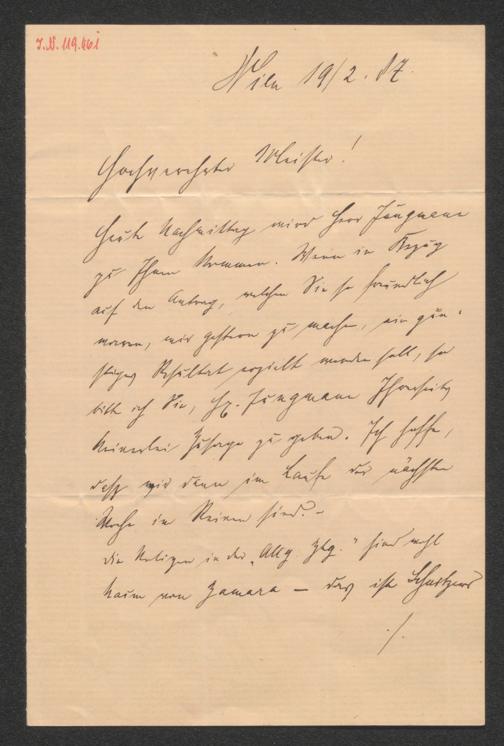 I.N. 119.661
Wien 19/2. 87.
Hochverehrter Meister!
Heute Nachmittag wird Herr Jungmann
zu Ihnen kommen. Wenn in Bezug
auf den Antrag, welchen Sie so freundlich
waren, mir gestern zu machen, ein gün-
stiges Resultat erzielt werden soll, so
bitte ich Sie, H. Jungmann Ihrerseits
keinerlei Zusage zu geben. Ich hoffe,
daß wir dann im Laufe der nächsten
Woche im Reinen sind. –
Die Notizen in der „Allg. Ztg." sind wohl
kaum von Zamara — das ist
./.